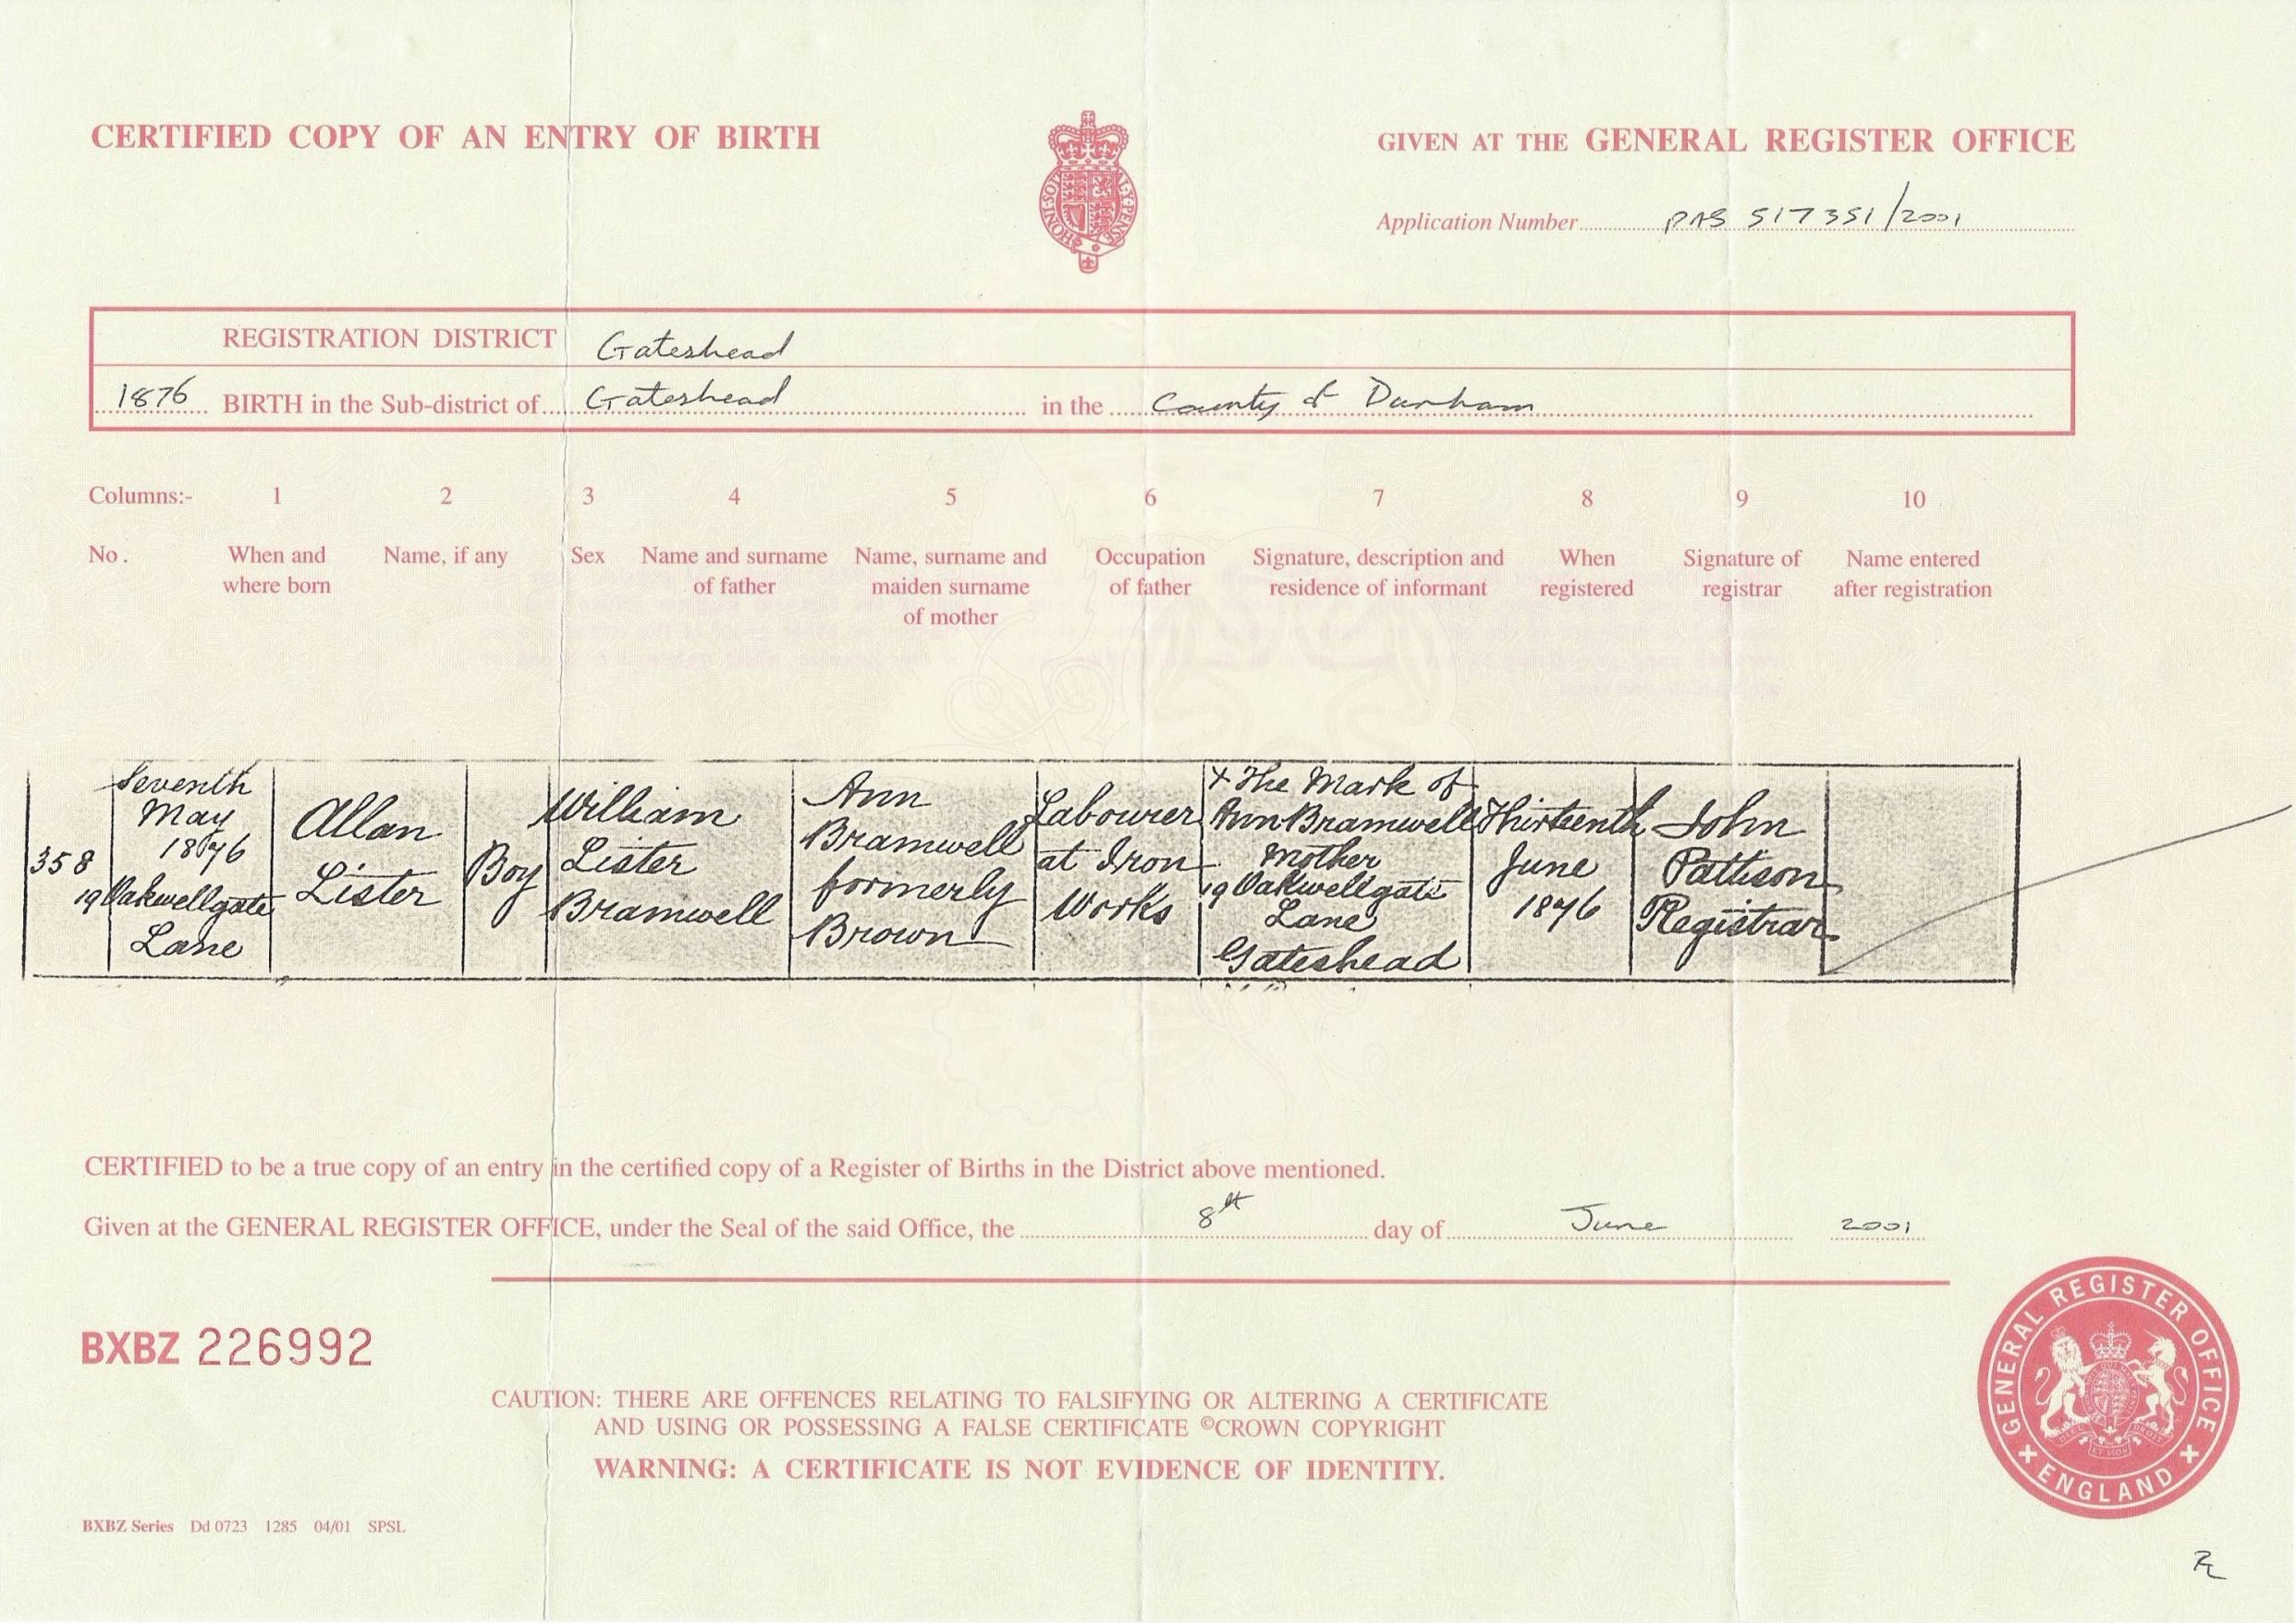 CERTIFIED COPY OF AN ENTRY OF BIRTH
GIVEN AT THE GENERAL REGISTER OFFICE
HONI·SOIT·QUI·MAL·Y·PENSE
Application Number PAS 517351/2001
REGISTRATION DISTRICT Gateshead
1876 BIRTH in the Sub-district of Gateshead in the County of Durham
Columns:- 1 2 3 4 5 6 7 8 9 10
No.
When and
where born
Name, if any
Sex
Name and surname
of father
Name, surname and
maiden surname
of mother
Occupation
of father
Signature, description and
residence of informant
When
registered
Signature of
registrar
Name entered
after registration
358
Seventh
May
1876
19 Oakwellgate
Lane
Allan
Lister
Boy
William
Lister
Bramwell
Ann
Bramwell
formerly
Brown
Labourer
at Iron
Works
X The Mark of
Ann Bramwell
Mother
19 Oakwellgate
Lane
Gateshead
Thirteenth
June
1876
John
Pattison
Registrar
CERTIFIED to be a true copy of an entry in the certified copy of a Register of Births in the District above mentioned.
Given at the GENERAL REGISTER OFFICE, under the Seal of the said Office, the 8th day of June 2001
BXBZ 226992
CAUTION: THERE ARE OFFENCES RELATING TO FALSIFYING OR ALTERING A CERTIFICATE
AND USING OR POSSESSING A FALSE CERTIFICATE ©CROWN COPYRIGHT
WARNING: A CERTIFICATE IS NOT EVIDENCE OF IDENTITY.
GENERAL REGISTER OFFICE
ENGLAND
BXBZ Series Dd 0723 1285 04/01 SPSL